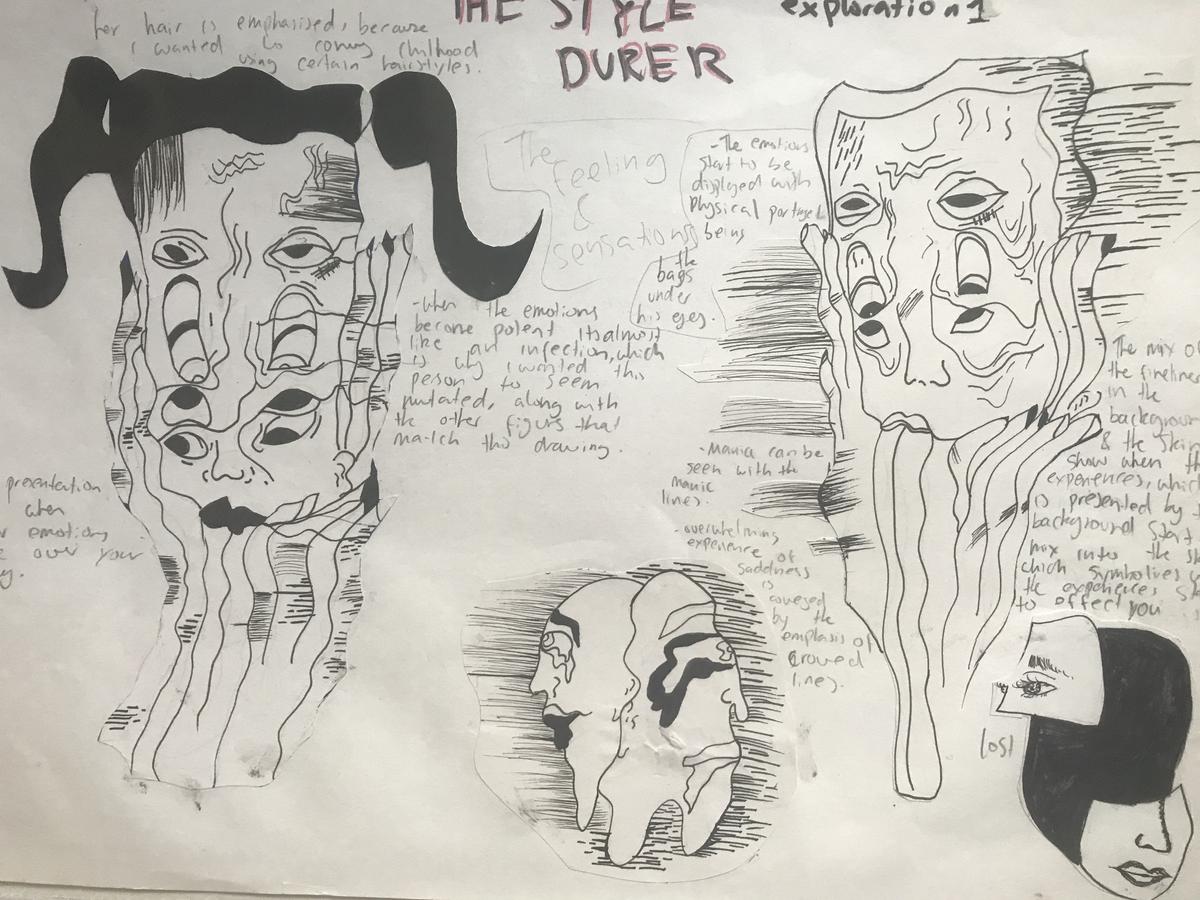 THE STYLE
DURER
exploration 1
her hair is emphasised, because
i wanted to convey childhood
using certain hairstyles.
The
feeling
&
sensations
- The emotions
start to be
displayed with
physical
being
the
bags
under
his eyes.
- when the emotions
become potent its almost
like an infection, which
is why i wanted this
person to seem
mutated, along with
the other figurs that
match this drawing.
presentation
when
emotions
over your
- Mania can be
seen with the
manic
lines.
- overwhelming
experience of
saddness
is
conveyed
by the
emphasis of
lines.
The mix of
the fineliner
in the
background
& the skin
show when the
experiences, which
is presented by the
background start
mix into the
which symbolises
the experiences
to effect you
lost